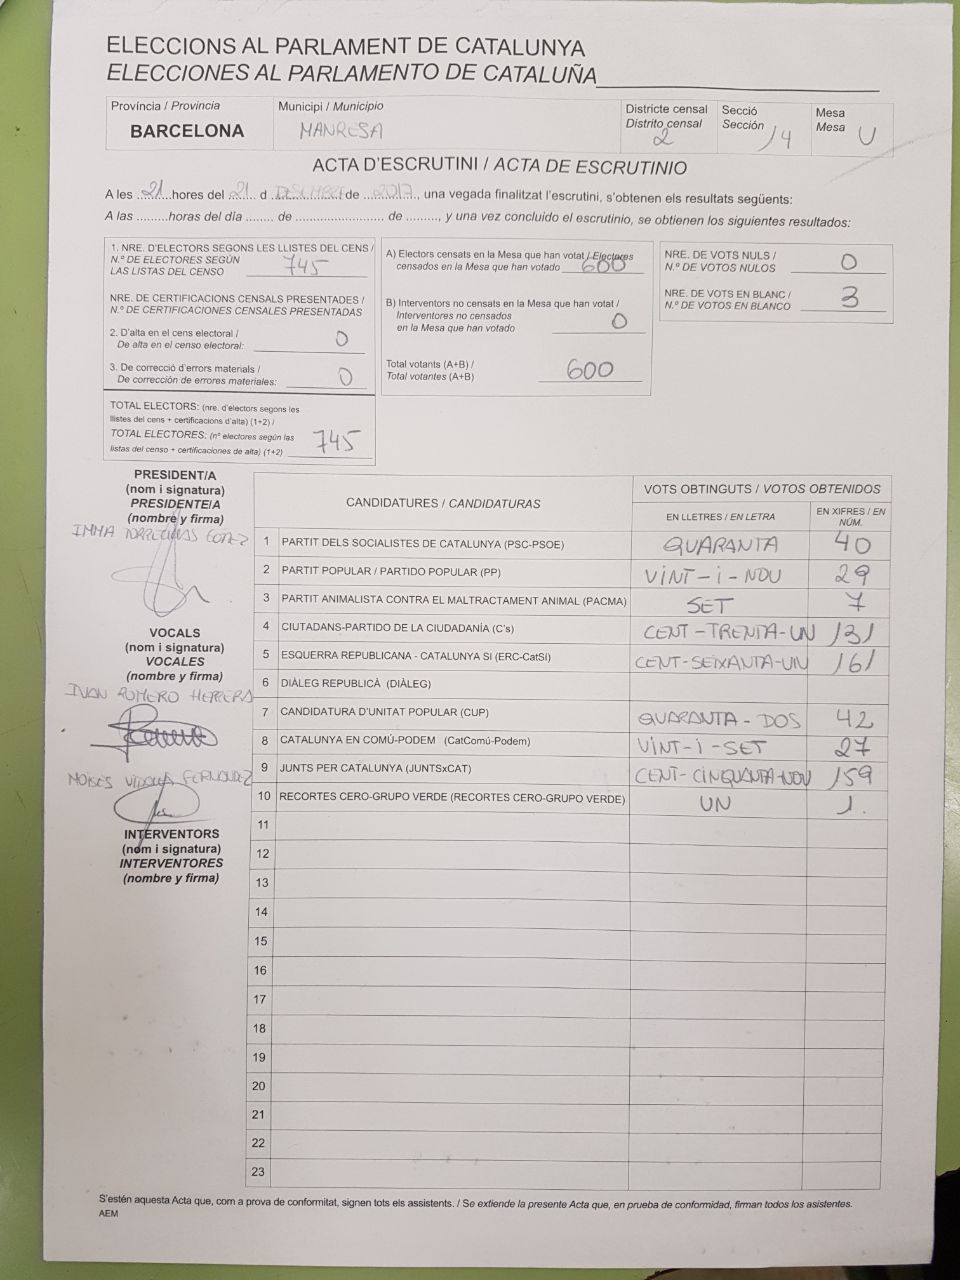 ELECCIONS AL PARLAMENT DE CATALUNYA
ELECCIONES AL PARLAMENTO DE CATALUÑA
Província / Provincia
BARCELONA
Municipi / Municipio
MANRESA
Districte censal
Distrito censal
2
Secció
Sección
14
Mesa
Mesa
U
ACTA D'ESCRUTINI / ACTA DE ESCRUTINIO
A les 21 hores del 21 d DESEMBRE de 2017, una vegada finalitzat l'escrutini, s'obtenen els resultats següents:
A las .........horas del día ........ de ......................... de ........., y una vez concluido el escrutinio, se obtienen los siguientes resultados:
1. NRE. D'ELECTORS SEGONS LES LLISTES DEL CENS /
N.º DE ELECTORES SEGÚN
LAS LISTAS DEL CENSO 745
NRE. DE CERTIFICACIONS CENSALS PRESENTADES /
N.º DE CERTIFICACIONES CENSALES PRESENTADAS
2. D'alta en el cens electoral /
De alta en el censo electoral: 0
3. De correcció d'errors materials /
De corrección de errores materiales: 0
TOTAL ELECTORS: (nre. d'electors segons les
llistes del cens + certificacions d'alta) (1+2) /
TOTAL ELECTORES: (nº electores según las
listas del censo + certificaciones de alta) (1+2) 745
A) Electors censats en la Mesa que han votat / Electores
censados en la Mesa que han votado 600
B) Interventors no censats en la Mesa que han votat /
Interventores no censados
en la Mesa que han votado 0
Total votants (A+B) /
Total votantes (A+B) 600
NRE. DE VOTS NULS /
N.º DE VOTOS NULOS 0
NRE. DE VOTS EN BLANC /
N.º DE VOTOS EN BLANCO 3
PRESIDENT/A
(nom i signatura)
PRESIDENTE/A
(nombre y firma)
IMMA
VOCALS
(nom i signatura)
VOCALES
(nombre y firma)
IVAN ROMERO HERRERA
MOISES FERNANDEZ
INTERVENTORS
(nom i signatura)
INTERVENTORES
(nombre y firma)
CANDIDATURES / CANDIDATURAS
VOTS OBTINGUTS / VOTOS OBTENIDOS
EN LLETRES / EN LETRA
EN XIFRES / EN NÚM.
1 PARTIT DELS SOCIALISTES DE CATALUNYA (PSC-PSOE) QUARANTA 40
2 PARTIT POPULAR / PARTIDO POPULAR (PP) VINT-I-NOU 29
3 PARTIT ANIMALISTA CONTRA EL MALTRACTAMENT ANIMAL (PACMA) SET 7
4 CIUTADANS-PARTIDO DE LA CIUDADANÍA (C's) CENT-TRENTA-UN 131
5 ESQUERRA REPUBLICANA - CATALUNYA SI (ERC-CatSI) CENT-SEIXANTA-UN 161
6 DIÀLEG REPUBLICÀ (DIÀLEG)
7 CANDIDATURA D'UNITAT POPULAR (CUP) QUARANTA-DOS 42
8 CATALUNYA EN COMÚ-PODEM (CatComú-Podem) VINT-I-SET 27
9 JUNTS PER CATALUNYA (JUNTSxCAT) CENT-CINQUANTA-NOU 159
10 RECORTES CERO-GRUPO VERDE (RECORTES CERO-GRUPO VERDE) UN 1.
11
12
13
14
15
16
17
18
19
20
21
22
23
S'estén aquesta Acta que, com a prova de conformitat, signen tots els assistents. / Se extiende la presente Acta que, en prueba de conformidad, firman todos los asistentes.
AEM